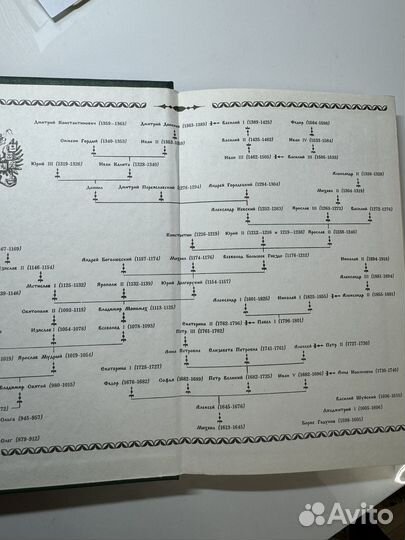 Дмитрий Константинович (1359-1363) Дмитрий Донской (1363-1389) Василий I (1389-1425) Федор (1584-1598)
Симеон Гордый (1340-1353) Иван II (1353-1359) Василий II (1425-1462) Иван IV (1533-1584)
Иван III (1462-1505) Василий III (1505-1533)
Юрий III (1319-1326) Иван Калита (1328-1340)
Александр II (1326-1328)
Даниил Дмитрий Переяславский (1276-1294) Андрей Городецкий (1294-1304) Михаил II (1304-1319)
Александр Невский (1252-1263) Ярослав III (1263-1272) Василий (1272-1276)
Константин (1216-1219) Юрий II (1212-1216 и 1219-1238) Ярослав II (1238-1246)
Изяслав II (1146-1154) Андрей Боголюбский (1157-1174) Михаил (1174-1176) Всеволод Большое Гнездо (1176-1212) Николай II (1894-1918)
Мстислав I (1125-1132) Ярополк II (1132-1139) Юрий Долгорукий (1154-1157) Александр III (1881-1894)
Святополк II (1093-1113) Владимир Мономах (1113-1125) Александр I (1801-1825) Николай I (1825-1855) Александр II (1855-1881)
Изяслав I (1054-1078) Всеволод I (1078-1093) Екатерина II (1762-1796) Павел I (1796-1801)
Петр III (1761-1762)
Ярослав Мудрый (1019-1054) Анна Петровна Елизавета Петровна (1741-1761) Алексей Петр II (1727-1730)
Екатерина I (1725-1727)
Владимир Святой (980-1015) Федор (1676-1682) Софья (1682-1689) Петр Великий (1682-1725) Иван V (1682-1696) Анна Иоанновна (1730-1740)
Ольга (945-957) Алексей (1645-1676) Василий Шуйский (1606-1610)
Лжедмитрий I (1605-1606)
Олег (879-912) Михаил (1613-1645) Борис Годунов (1598-1605)
Avito